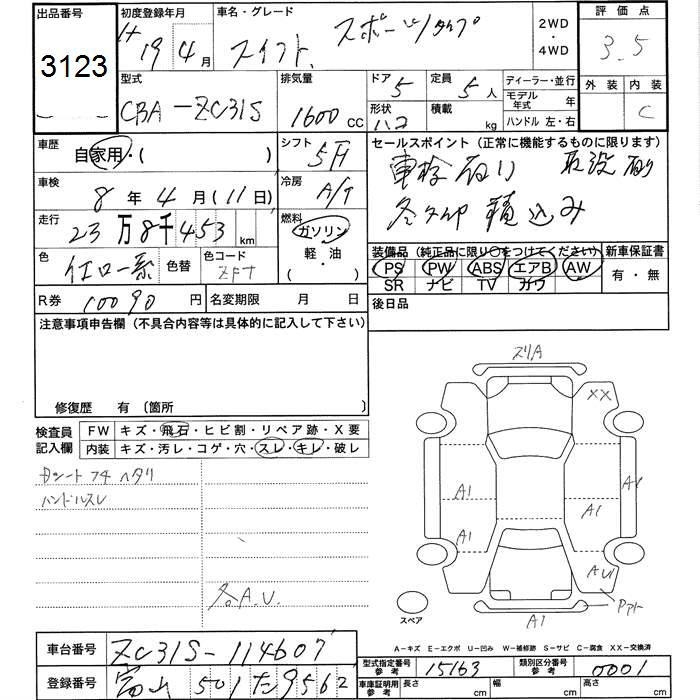 出品番号
3123
初度登録年月
H 19 4月
車名・グレード
スイフト スポーツ
2WD・4WD
評価点
3.5
外装 内装
C
型式
CBA-ZC31S
排気量
1600 CC
ドア 5
形状 ハコ
定員 5人
積載 kg
ディーラー・並行
モデル年式 年
ハンドル 左・右
車歴
自家用・( )
シフト
5F
車検
8年 4月 (11日)
冷房
A/T
走行
23万8千453 km
燃料
ガソリン
軽・油
( ・ )
色
イエロー系
色替
色コード
ZFT
R券 10090円
名変期限 月 日
セールスポイント(正常に機能するものに限ります)
車検 取説
冬タイヤ 積込み
装備品(純正品に限り〇をつけてください)
新車保証書
PS PW ABS エアB AW
SR ナビ TV カワ
有・無
後日品
注意事項申告欄(不具合内容等は具体的に記入して下さい)
修復歴 有(箇所 )
検査員記入欄
FW キズ・飛石・ヒビ割・リペア跡・X要
内装 キズ・汚レ・コゲ・穴・スレ・キレ・破レ
Dシート フチ ヘタリ
ハンドルスレ
各A.U.
スリA
XX
A1
A1
A1
A1
A1
スペア
A1
A-キズ E-エクボ U-凹み W-補修跡 S-サビ C-腐食 XX-交換済
車台番号
ZC31S-114607
型式指定番号
参考
15163
類別区分番号
参考
0001
登録番号
富山 501 た 9562
車庫証明用
参考
長 cm
幅 cm
高 cm